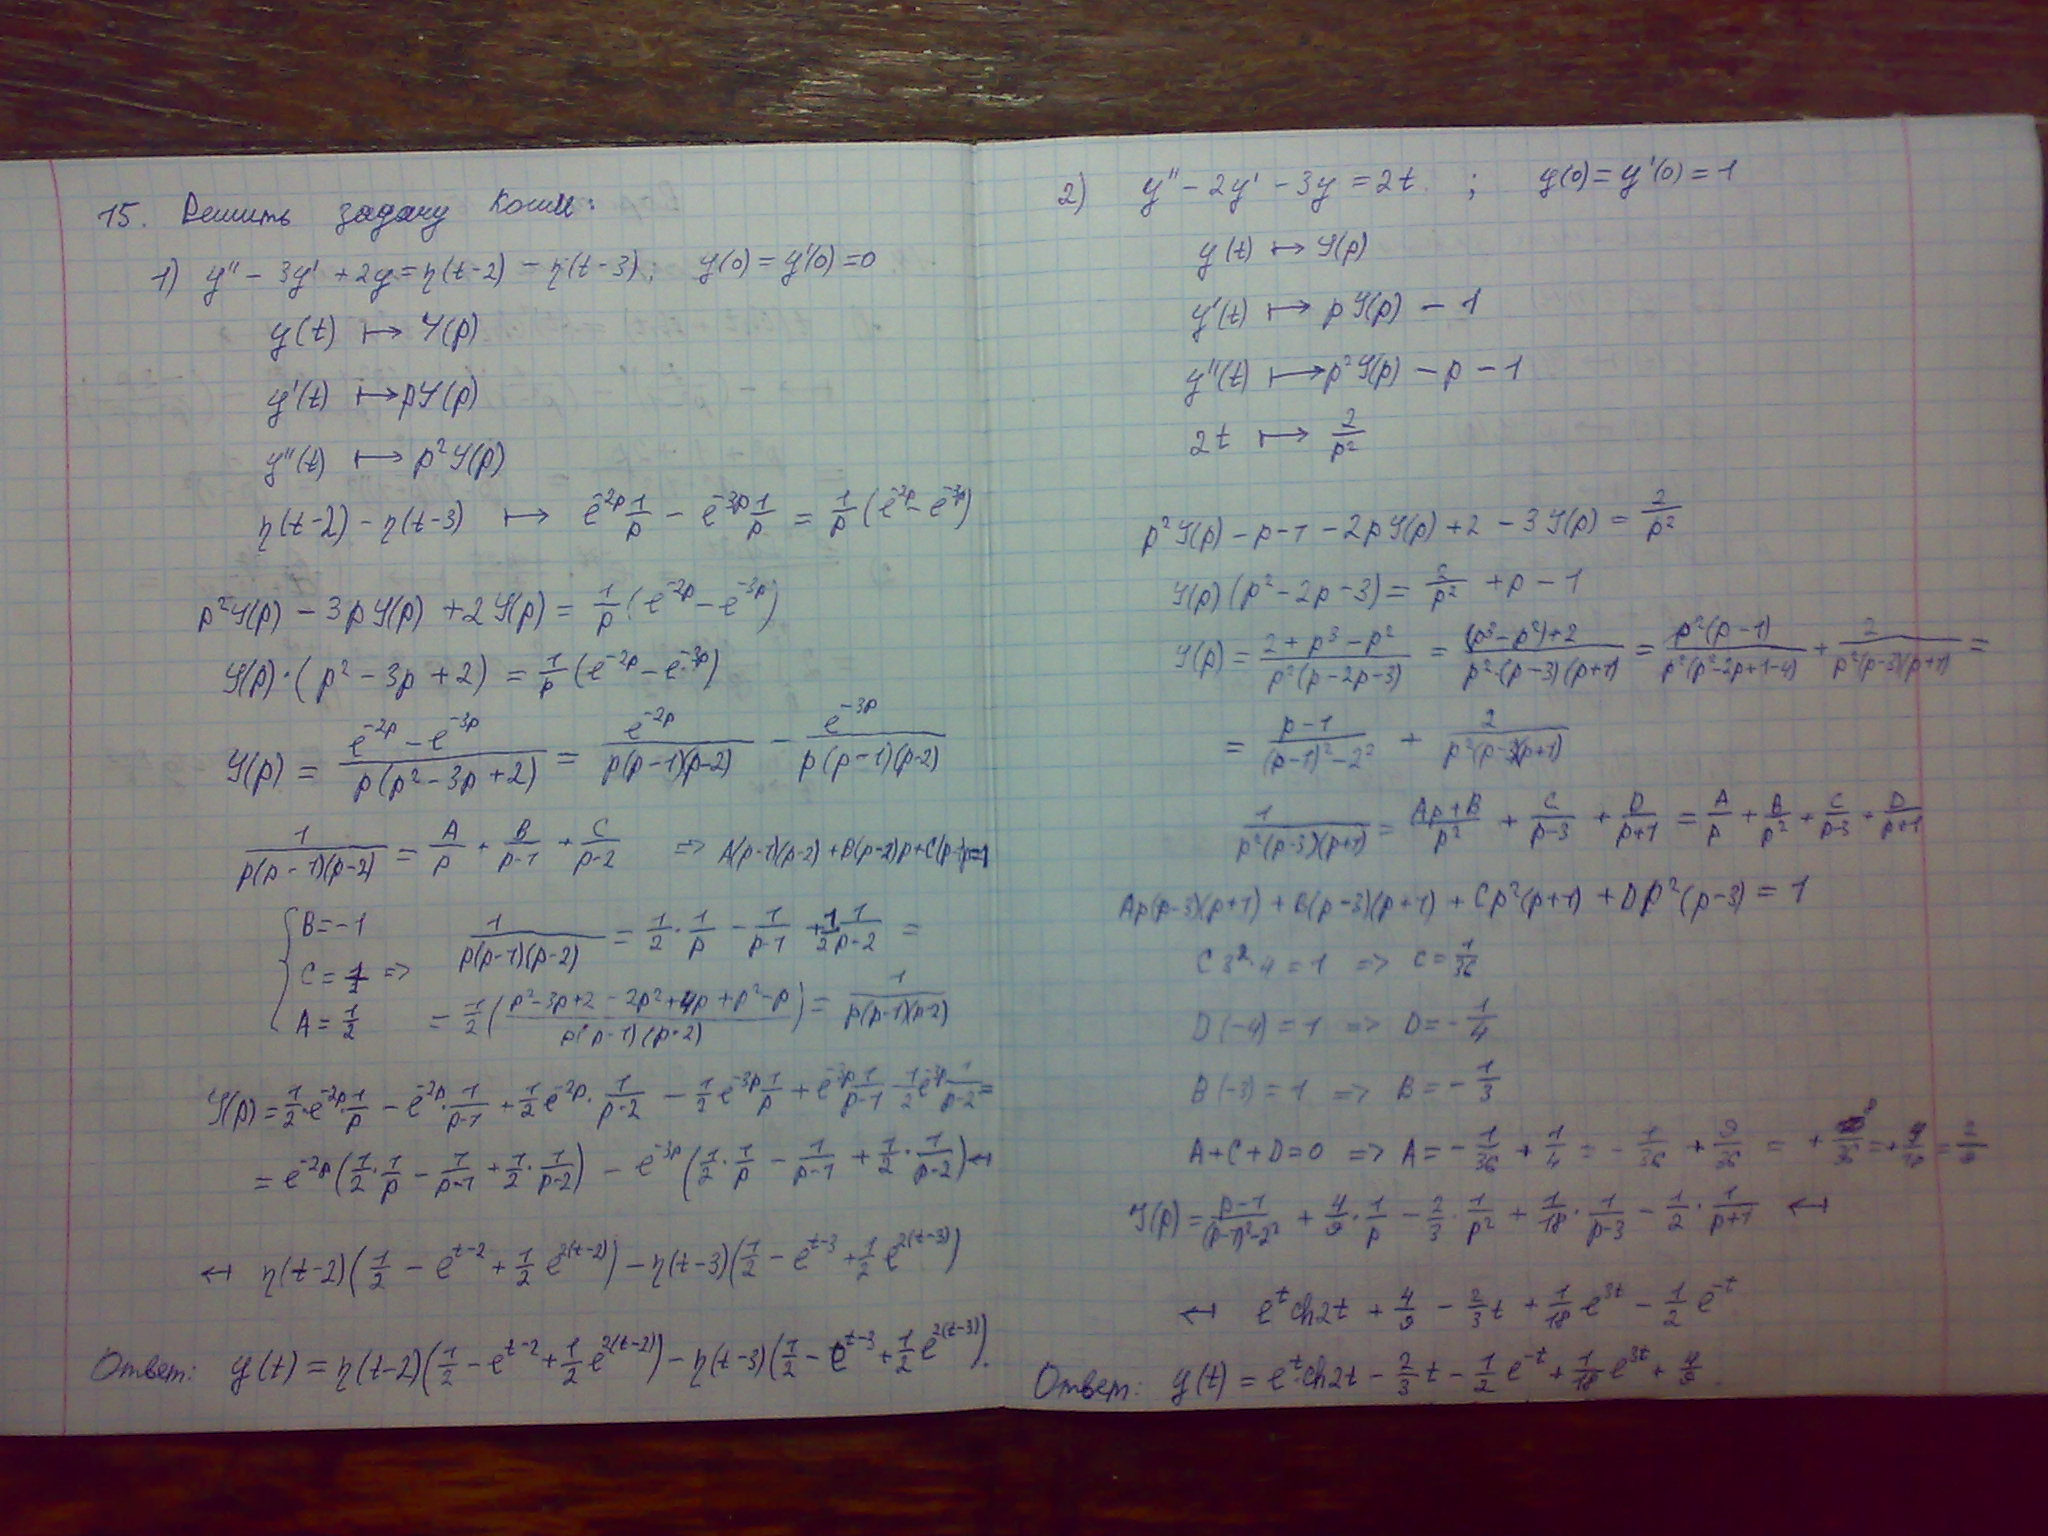 15. Решить задачу Коши:
1) y'' - 3y' + 2y = η(t-2) - η(t-3); y(0) = y'(0) = 0
y(t) ↦ Y(p)
y'(t) ↦ pY(p)
y''(t) ↦ p²Y(p)
η(t-2) - η(t-3) ↦ e^{-2p} 1/p - e^{-3p} 1/p = 1/p (e^{-2p} - e^{-3p})
p²Y(p) - 3pY(p) + 2Y(p) = 1/p (e^{-2p} - e^{-3p})
Y(p)·(p² - 3p + 2) = 1/p (e^{-2p} - e^{-3p})
Y(p) = (e^{-2p} - e^{-3p})/(p(p² - 3p + 2)) = e^{-2p}/(p(p-1)(p-2)) - e^{-3p}/(p(p-1)(p-2))
1/(p(p-1)(p-2)) = A/p + B/(p-1) + C/(p-2) => A(p-1)(p-2) + B(p-2)p + C(p-1)p = 1
{ B = -1
C = 1/2 =>
A = 1/2
1/(p(p-1)(p-2)) = 1/2 · 1/p - 1/(p-1) + 1/2 1/(p-2) =
= 1/2 ((p² - 3p + 2 - 2p² + 4p + p² - p)/(p(p-1)(p-2))) = 1/(p(p-1)(p-2))
Y(p) = 1/2 · e^{-2p} · 1/p - e^{-2p} · 1/(p-1) + 1/2 e^{-2p} · 1/(p-2) - 1/2 e^{-3p} 1/p + e^{-3p} 1/(p-1) - 1/2 e^{-3p} 1/(p-2) =
= e^{-2p} (1/2 · 1/p - 1/(p-1) + 1/2 · 1/(p-2)) - e^{-3p} (1/2 · 1/p - 1/(p-1) + 1/2 · 1/(p-2)) ↤
↤ η(t-2)(1/2 - e^{t-2} + 1/2 e^{2(t-2)}) - η(t-3)(1/2 - e^{t-3} + 1/2 e^{2(t-3)})
Ответ: y(t) = η(t-2)(1/2 - e^{t-2} + 1/2 e^{2(t-2)}) - η(t-3)(1/2 - e^{t-3} + 1/2 e^{2(t-3)}).
2) y'' - 2y' - 3y = 2t ; y(0) = y'(0) = 1
y(t) ↦ Y(p)
y'(t) ↦ pY(p) - 1
y''(t) ↦ p²Y(p) - p - 1
2t ↦ 2/p²
p²Y(p) - p - 1 - 2pY(p) + 2 - 3Y(p) = 2/p²
Y(p)(p² - 2p - 3) = 2/p² + p - 1
Y(p) = (2 + p³ - p²)/(p²(p - 2p - 3)) = ((p³ - p²) + 2)/(p²·(p-3)(p+1)) = p²(p-1)/(p²(p² - 2p + 1 - 4)) + 2/(p²(p-3)(p+1)) =
= (p-1)/((p-1)² - 2²) + 2/(p²(p-3)(p+1))
1/(p²(p-3)(p+1)) = (Ap + B)/p² + C/(p-3) + D/(p+1) = A/p + B/p² + C/(p-3) + D/(p+1)
Ap(p-3)(p+1) + B(p-3)(p+1) + Cp²(p+1) + Dp²(p-3) = 1
C 3² · 4 = 1 => C = 1/36
D(-4) = 1 => D = -1/4
B(-3) = 1 => B = -1/3
A + C + D = 0 => A = -1/36 + 1/4 = -1/36 + 9/36 = + 8/36 = + 4/18 = 2/9
Y(p) = (p-1)/((p-1)² - 2²) + 4/9 · 1/p - 2/3 · 1/p² + 1/18 · 1/(p-3) - 1/2 · 1/(p+1) ↤
↤ e^t ch2t + 4/9 - 2/3 t + 1/18 e^{3t} - 1/2 e^{-t}
Ответ: y(t) = e^t · ch2t - 2/3 t - 1/2 e^{-t} + 1/18 e^{3t} + 4/9.